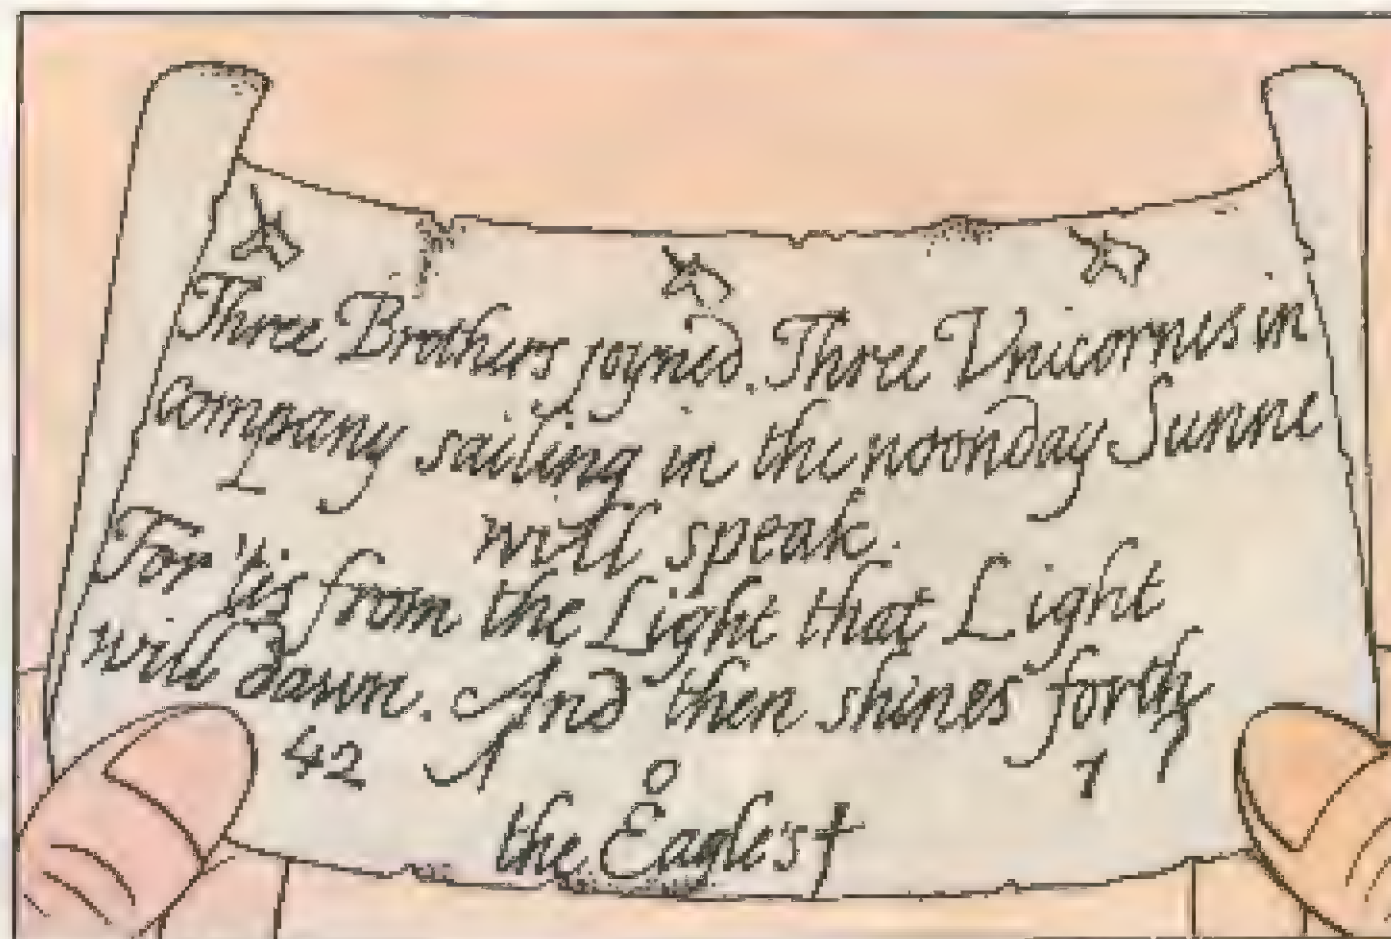 Three Brothers joyned. Three Unicornes in
company sailing in the noonday Sunne
will speak.
For 'tis from the Light that Light
will dawn. And then shines forth
42 0 7
the Eagle's †